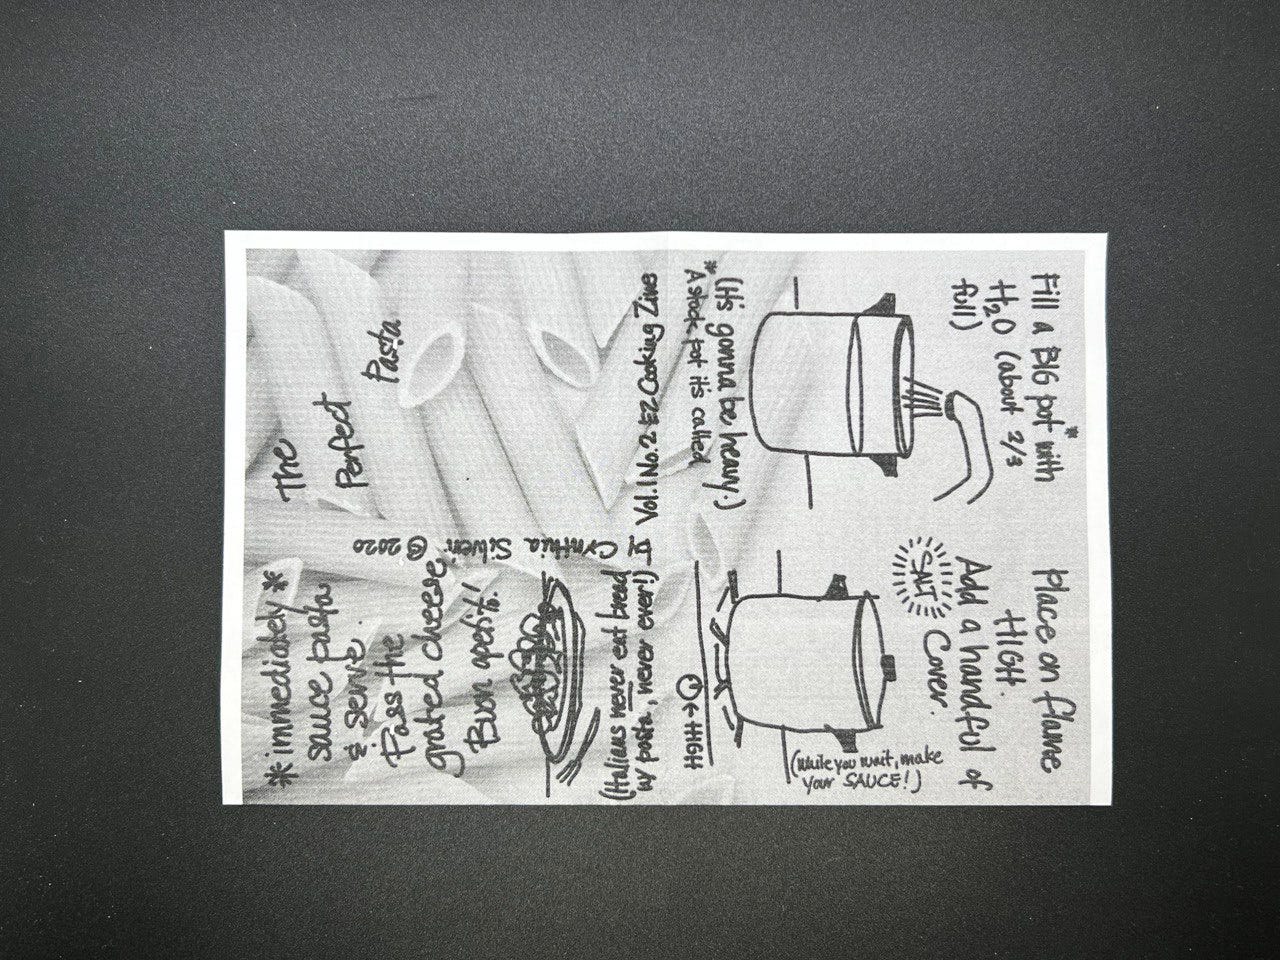 The
Perfect
Pasta
Vol. 1 No. 2 EZ Cooking Zine
Fill a BIG pot* with
H2O (about 2/3
full)
(It's gonna be heavy.)
* A stock pot it's called
Place on flame
HIGH.
Add a handful of
SALT
Cover.
(While you wait, make
your SAUCE!)
←HIGH
* immediately *
sauce pasta
& serve.
Pass the
grated cheese,
Buon apetito!
(Italians never eat bread
w/ pasta, never ever!)
Cynthia Silveri © 2020